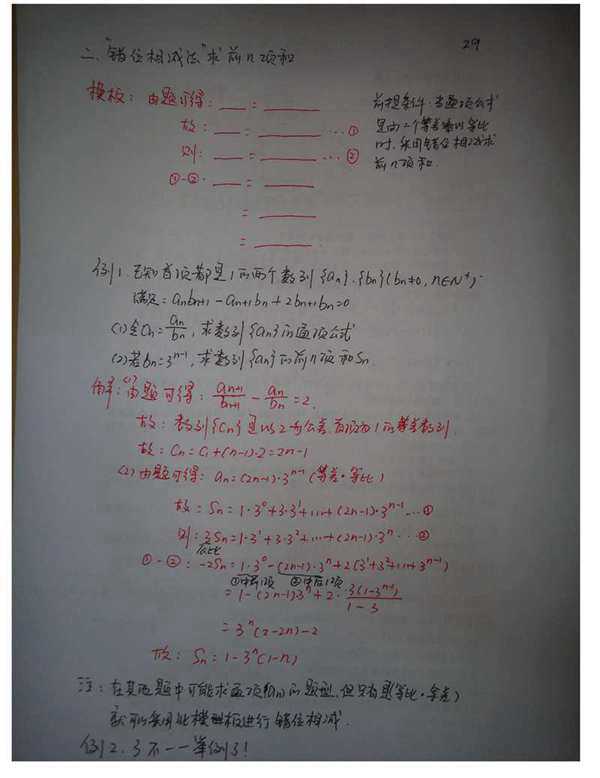 29
二、"错位相减法"求前n项和
模板：由题可得：__ = ____
前提条件：当通项公式
是由一个等差乘以等比
时，采用错位相减求
前n项和.
故：__ = ____ …①
则：__ = ____ …②
①-②：__ = ____
= ____
= ____
例1.已知首项都是1的两个数列{an}.{bn}(bn≠0, n∈N*).
满足：anbn+1 - an+1bn + 2bn+1bn=0
(1)令Cn=an/bn，求数列{cn}的通项公式
(2)若bn=3^(n-1)，求数列{an}的前n项和Sn.
解：(1)由题可得：an+1/bn+1 - an/bn =2.
故：数列{Cn}是以2为公差，首项为1的等差数列.
故：Cn=C1+(n-1)·2=2n-1
(2)由题可得：an=(2n-1)·3^(n-1) (等差·等比)
故：Sn=1·3^0+3·3^1+…+(2n-1)·3^(n-1) …①
则：3Sn=1·3^1+3·3^2+…+(2n-1)·3^n …②
①-②：-2Sn=1·3^0-(2n-1)·3^n+2(3^1+3^2+…+3^(n-1))
=1-(2n-1)3^n+2·3(1-3^(n-1))/(1-3)
=3^n(2-2n)-2
故：Sn=1-3^n(1-n)
注：在其他题中可能求通项的题型，但只有是(等比·等差)
就可以采用此模板进行错位相减.
例2.3不一一举例了！